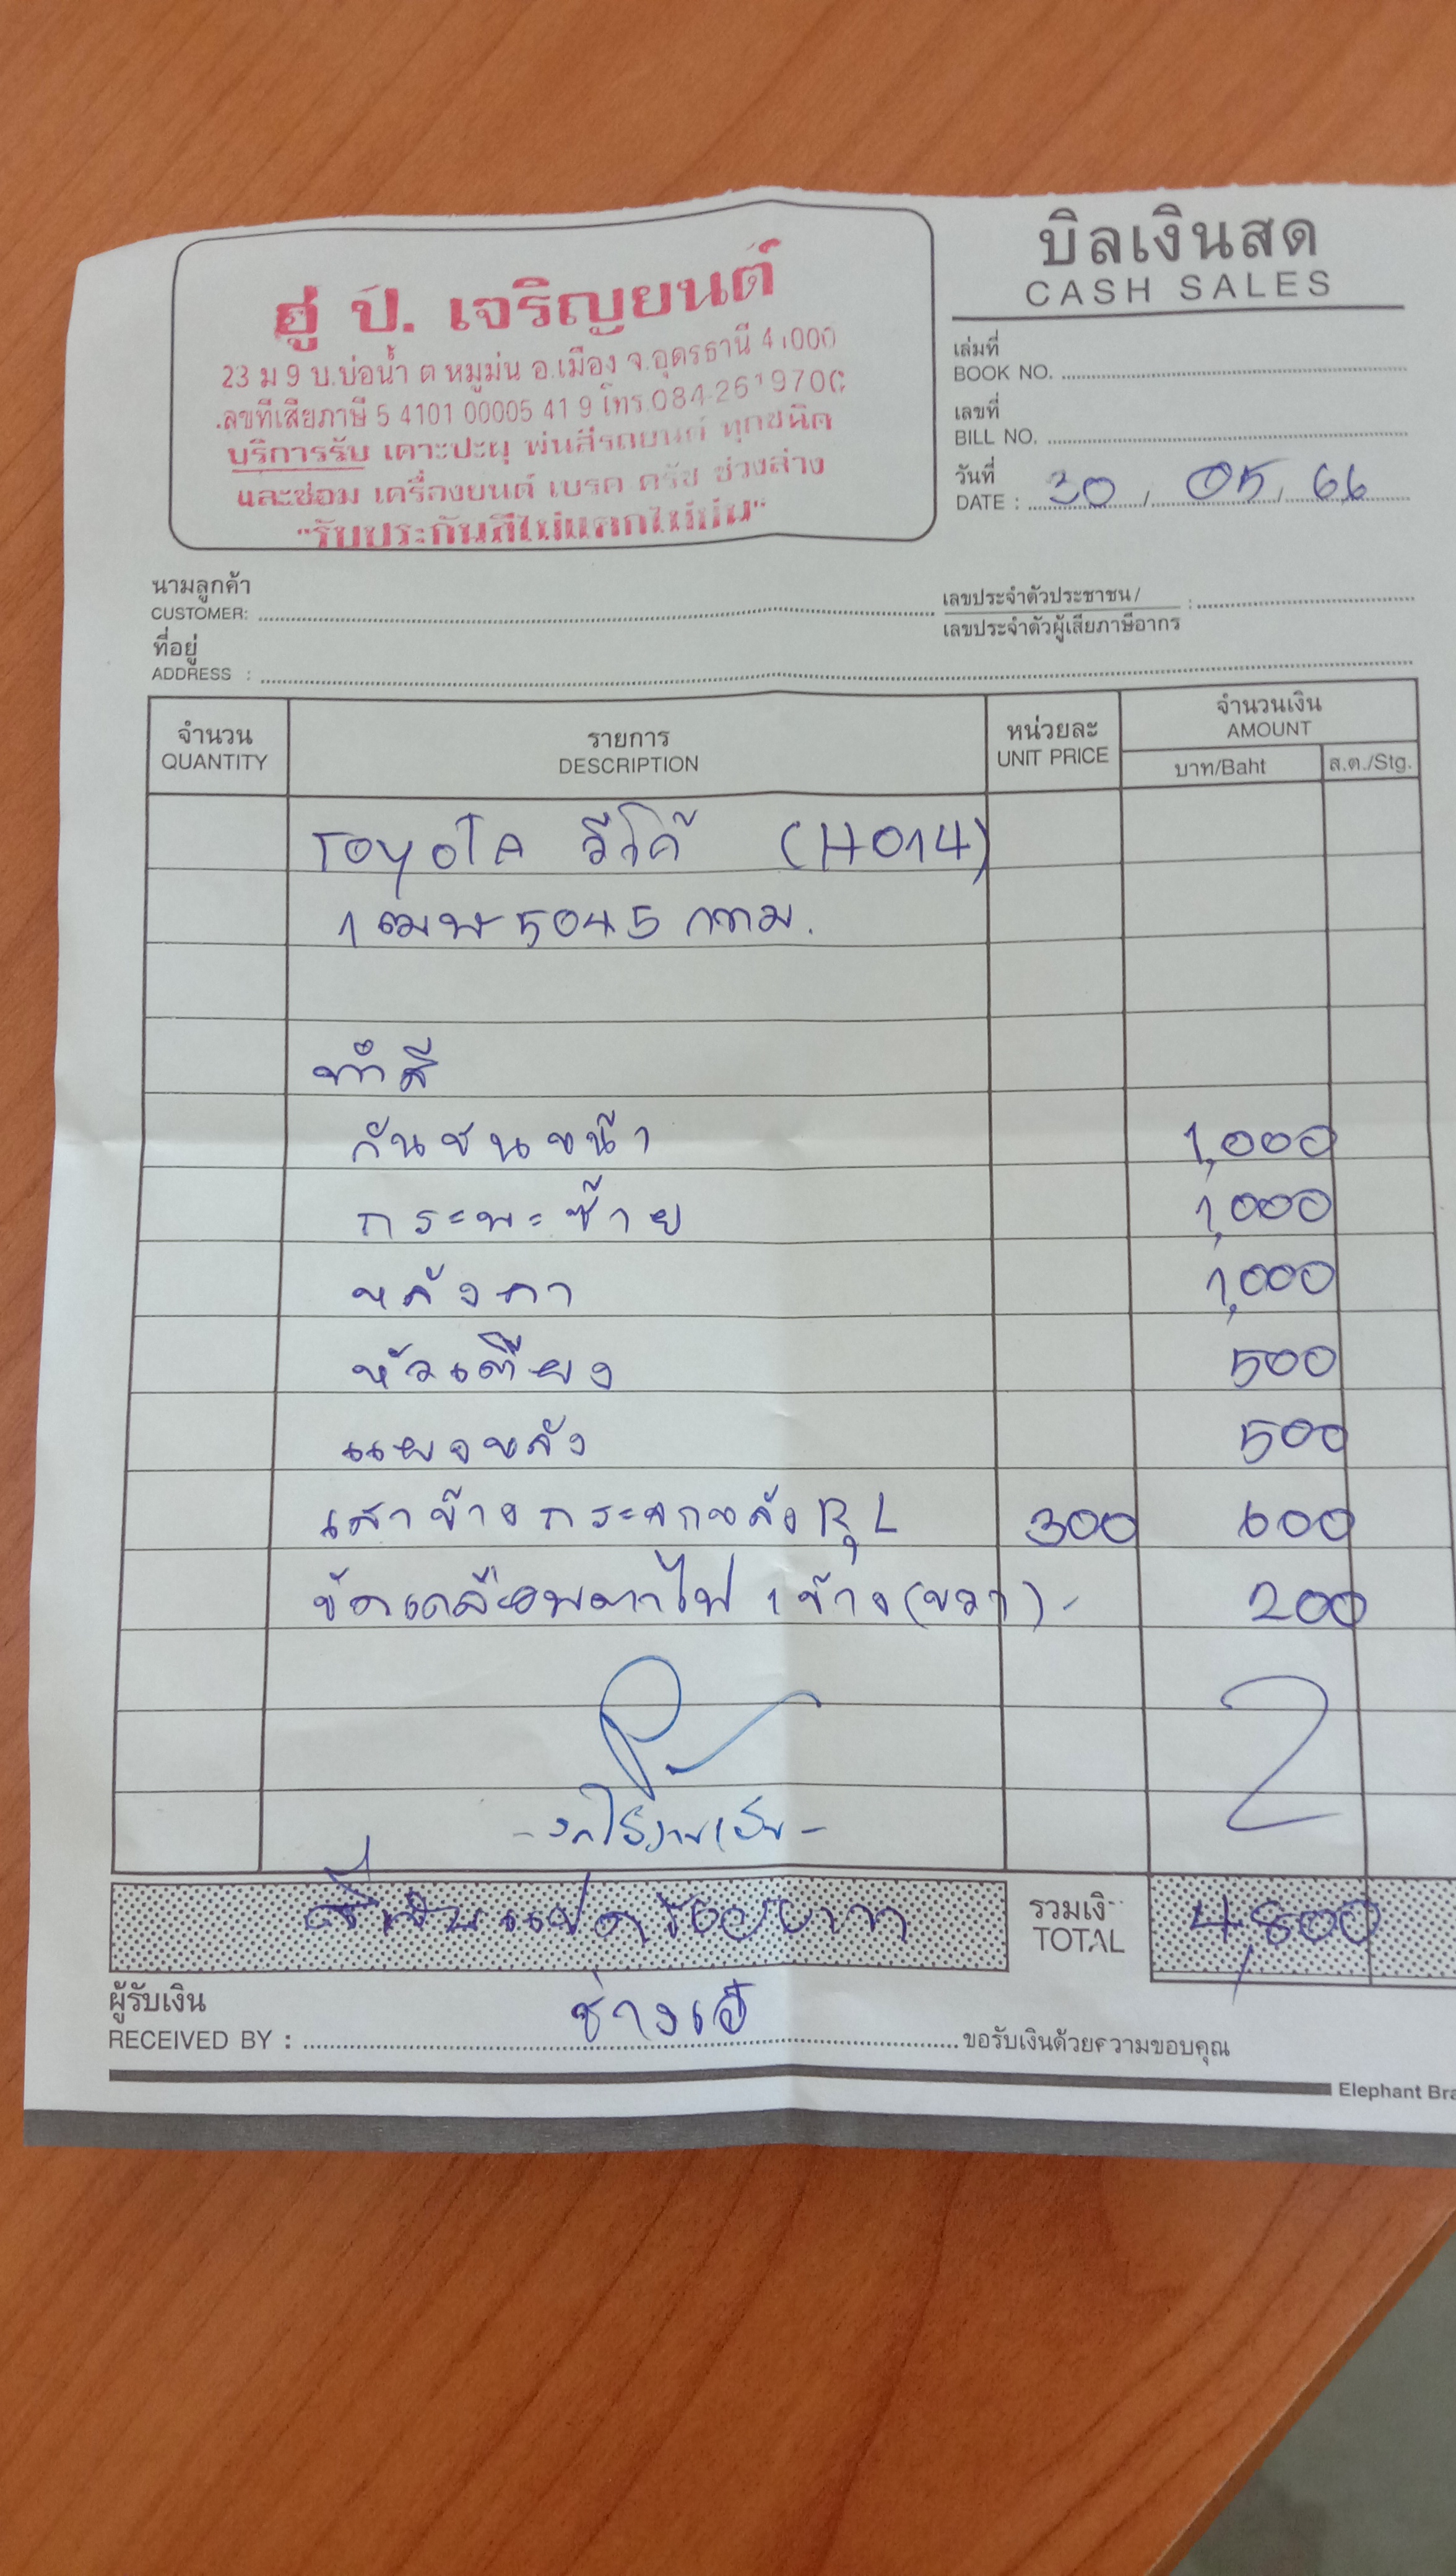 บิลเงินสด
CASH SALES
อู่ ป. เจริญยนต์
23 ม 9 บ.บ่อน้ำ ต หมูม่น อ.เมือง จ.อุดรธานี 41000
เลขที่เสียภาษี 5 4101 00005 41 9 โทร.084-261
บริการรับ เคาะปะผุ พ่นสีรถยนต์ ทุกชนิด
และซ่อม เครื่องยนต์ เบรค ครัช ช่วงล่าง
"รับประกันสีไม่แตกไม่
เล่มที่
BOOK NO.
เลขที่
BILL NO.
วันที่
DATE : 30 / 05 / 66
นามลูกค้า
CUSTOMER:
เลขประจำตัวประชาชน /
เลขประจำตัวผู้เสียภาษีอากร :
ที่อยู่
ADDRESS :
จำนวน
QUANTITY
รายการ
DESCRIPTION
หน่วยละ
UNIT PRICE
จำนวนเงิน
AMOUNT
บาท/Baht
ส.ต./Stg.
TOYOTA วีโก้ (H014)
1ฒฬ 5045 กทม.
ทำสี
กันชนหน้า 1,000
กระบะซ้าย 1,000
หลังคา 1,000
หัวเตียง 500
แผงหลัง 500
เสาข้างกระจกหลัง R, L 300 600
ขัดเคลือบตาไฟ 1 ข้าง (ขวา) - 200
สี่พันแปดร้อยบาท
รวมเงิ
TOTAL
4,800
ผู้รับเงิน
RECEIVED BY : ช่างเอ๋ ขอรับเงินด้วยความขอบคุณ
Elephant Bra